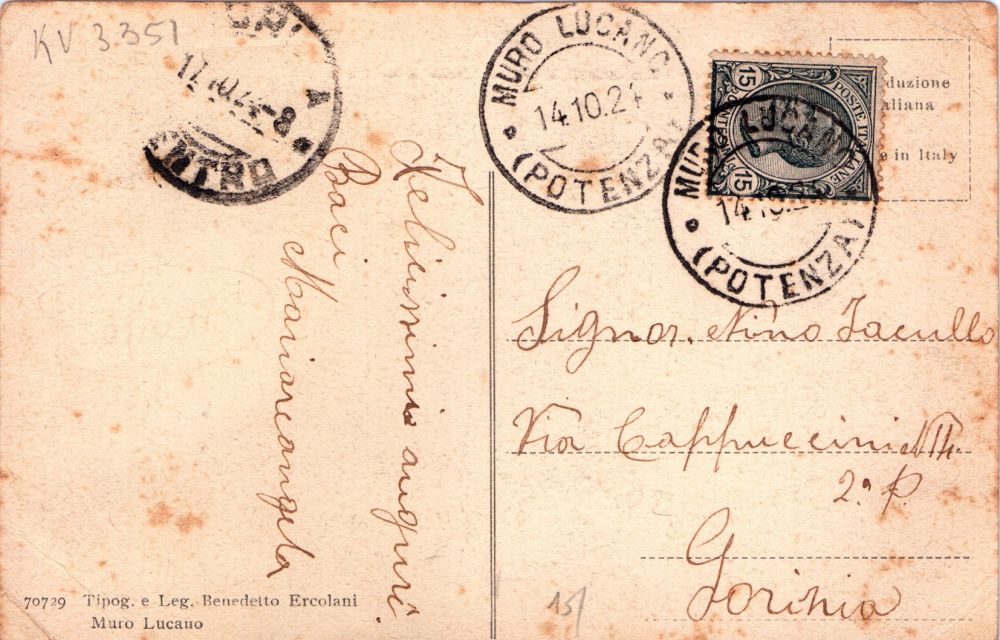 KV 3351
A
17.10.24-8
CENTRO
MURO LUCANO
14.10.24
(POTENZA)
15
POSTE ITALIANE
15
LUCANO
14.10.2
(POTENZA)
duzione
aliana
e in Italy
Felicissimi auguri
Baci
Mariarcangela
Signor. Nino Iacullo
Via Cappuccini N
2° P.
Gorizia
70729 Tipog. e Leg. Benedetto Ercolani
Muro Lucano
15/